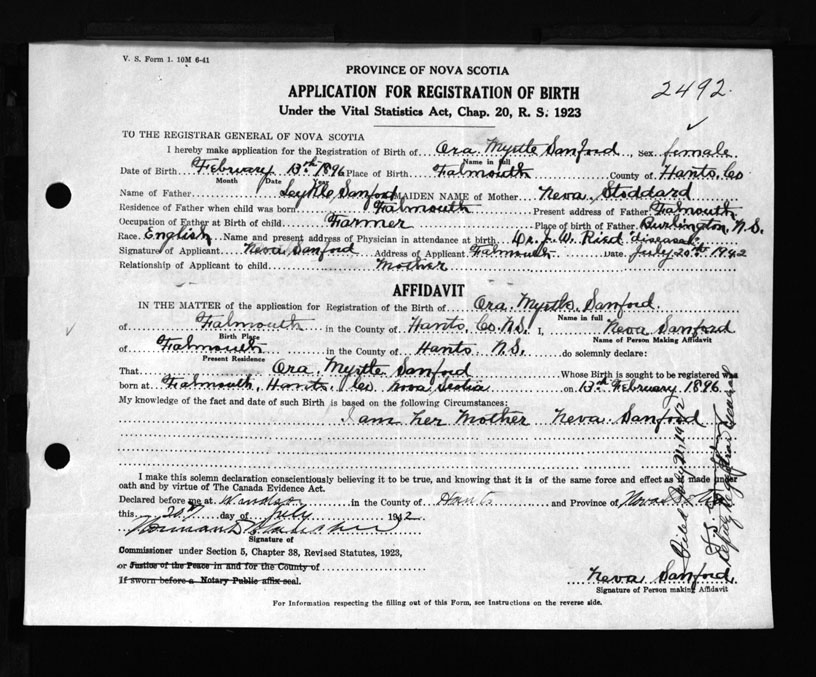 V. S. Form 1. 10M 6-41
PROVINCE OF NOVA SCOTIA
APPLICATION FOR REGISTRATION OF BIRTH
2492.
Under the Vital Statistics Act, Chap. 20, R. S. 1923
TO THE REGISTRAR GENERAL OF NOVA SCOTIA
I hereby make application for the Registration of Birth of Ora Myrtle Sanford, Sex female
Name in full
Date of Birth February 13th 1896 Place of Birth Falmouth County of Hants Co
Month Date Yr.
Name of Father Sanford MAIDEN NAME of Mother Neva Stoddard
Residence of Father when child was born Falmouth Present address of Father Falmouth
Occupation of Father at Birth of child. Farmer Place of birth of Father Burlington, N.S.
Race. English Name and present address of Physician in attendance at birth Dr. J. W. Ried
Signature of Applicant Neva Sanford Address of Applicant Falmouth Date. July 20th 1942
Relationship of Applicant to child Mother
AFFIDAVIT
IN THE MATTER of the application for Registration of the Birth of Ora Myrtle Sanford.
Name in full
of Falmouth in the County of Hants Co N.S. I, Neva Sanford
Birth Place Name of Person Making Affidavit
of Falmouth in the County of Hants N.S. do solemnly declare:
Present Residence
That Ora Myrtle Sanford Whose Birth is sought to be registered was
born at Falmouth, Hants Co Nova Scotia on 13th February 1896
My knowledge of the fact and date of such Birth is based on the following Circumstances:
I am her Mother Neva Sanford
I make this solemn declaration conscientiously believing it to be true, and knowing that it is of the same force and effect as if made under
oath and by virtue of The Canada Evidence Act.
Declared before me at Windsor in the County of Hants and Province of Nova
this 20 day of July 1942
Norman D
Signature of
Commissioner under Section 5, Chapter 38, Revised Statutes, 1923,
or Justice of the Peace in and for the County of
If sworn before a Notary Public affix seal.
Neva Sanford
Signature of Person making Affidavit
For Information respecting the filling out of this Form, see Instructions on the reverse side.
Filed July 21 1942
Deputy Registrar General